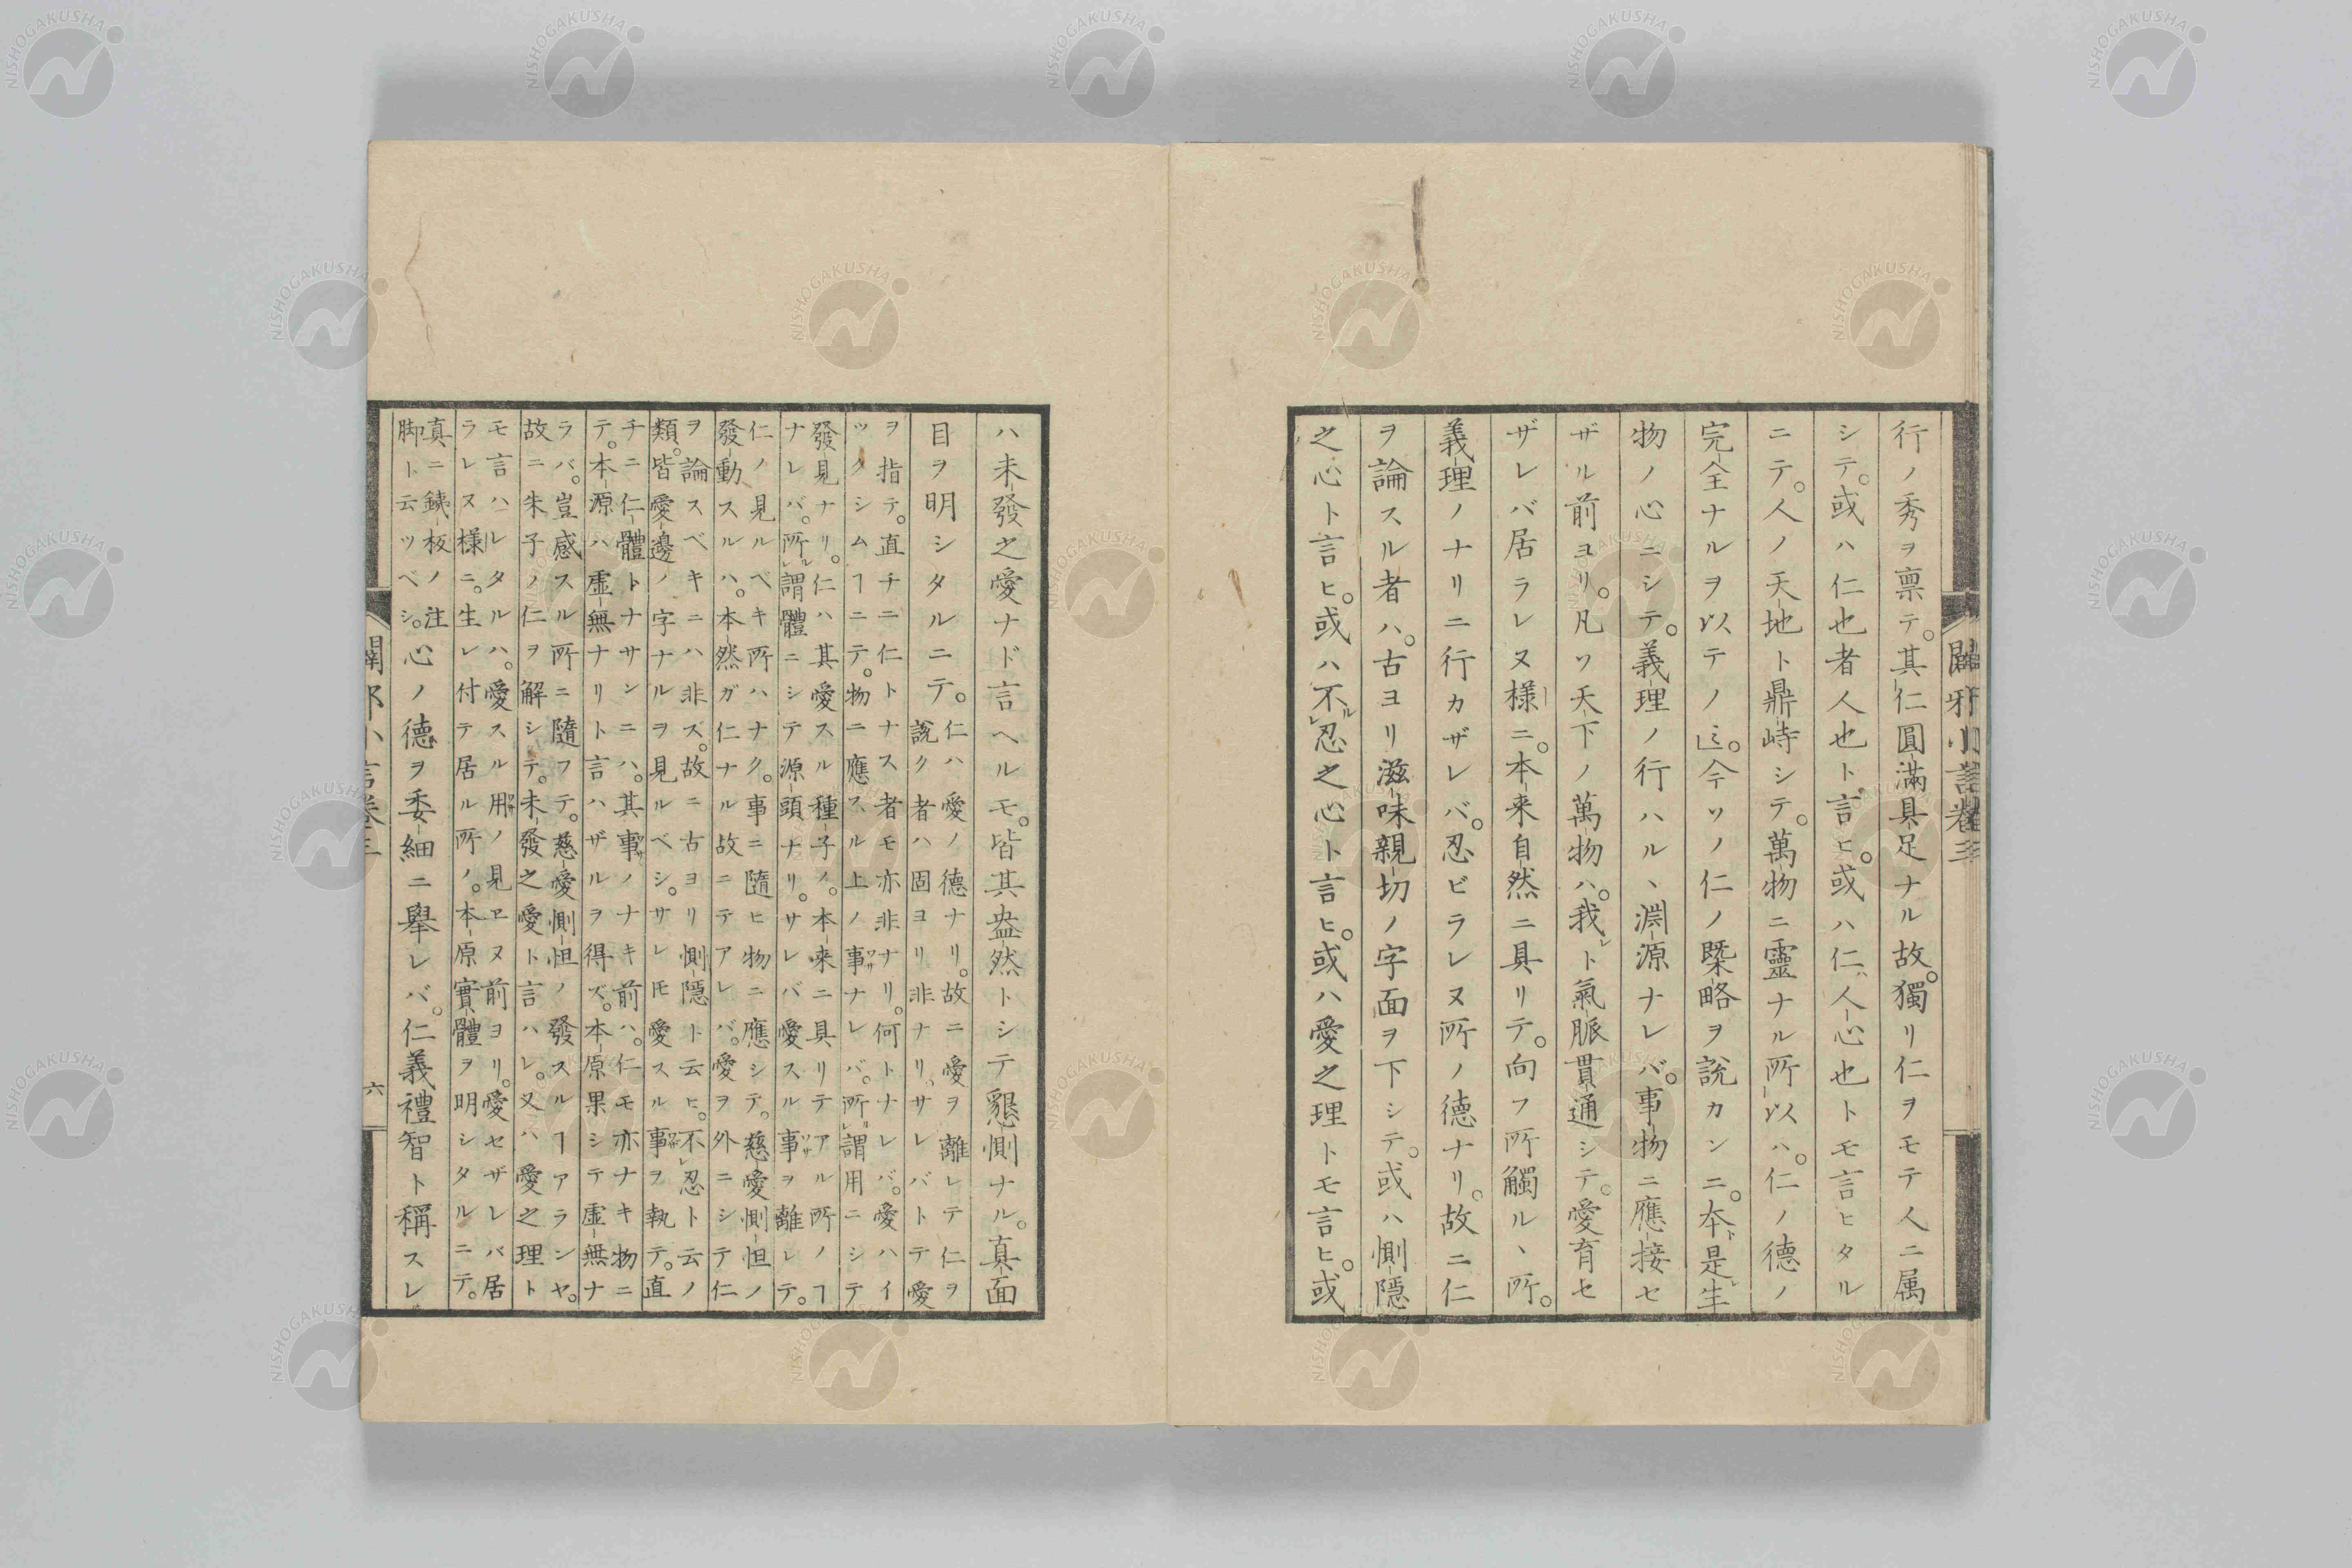 闢邪小言卷三
行ノ秀ヲ禀テ。其仁圓滿具足ナル故。獨リ仁ヲモテ人ニ属
シテ。或ハ仁也者人也ト言ヒ。或ハ仁ハ人心也トモ言ヒタル
ニテ。人ノ天地ト鼎峙シテ。萬物ニ靈ナル所以ハ。仁ノ德ノ
完全ナルヲ以テノ𪜈。今ソノ仁ノ槩略ヲ說カンニ。夲ト是レ生
物ノ心ニシテ。義理ノ行ハル、淵源ナレバ。事物ニ應接セ
ザル前ヨリ。凡ソ天下ノ萬物ハ。我レト氣脈貫通シテ。愛育セ
ザレバ居ラレヌ様ニ。本来自然ニ具リテ。向フ所觸ル、所。
義理ノナリニ行カザレバ。忍ビラレヌ所ノ德ナリ。故ニ仁
ヲ論スル者ハ。古ヨリ滋味親切ノ字面ヲ下シテ。或ハ惻隱
之心ト言ヒ。或ハ不ルレ忍之心ト言ヒ。或ハ愛之理トモ言ヒ。或
ハ未發之愛ナド言ヘルモ。皆其盎然トシテ懇惻ナル。真面
目ヲ明シタルニテ。
仁ハ愛ノ德ナリ。故ニ愛ヲ離レテ仁ヲ
說ク者ハ固ヨリ非ナリ。サレバトテ愛
ヲ指テ。直チニ仁トナス者モ亦非ナリ。何トナレバ。愛ハイ
ツクシムヿニテ。物ニ應スル上ノ事ナレバ。所謂用ニシテ
發見ナリ。仁ハ其愛スル種子ノ。本来ニ具リテアル所ノヿ
ナレバ。所謂體ニシテ源頭ナリ。サレバ愛スル事ヲ離レテ。
仁ノ見ルベキ所ハナク。事ニ隨ヒ物ニ應シテ。慈愛惻怛ノ
發動スルハ。本然ガ仁ナル故ニテアレバ。愛ヲ外ニシテ仁
ヲ論スベキニハ非ズ。故ニ古ヨリ惻隱ト云ヒ。不レ忍ト云ノ
類。皆愛邊ノ字ナルヲ見ルベシ。サレ𪜈愛スル事ヲ執テ。直
チニ仁體トナサンニハ。其事ノナキ前ハ。仁モ亦ナキ物ニ
テ。本源ハ虛無ナリト言ハザルヲ得ズ。本原果シテ虛無ナ
ラバ。豈感スル所ニ隨フテ。慈愛惻怛ノ發スルヿアランヤ。
故ニ朱子ノ仁ヲ解シテ。未發之愛ト言ハレ。又ハ愛之理ト
モ言ハレタルハ。愛スル用ノ見ヱヌ前ヨリ。愛セザレバ居
ラレヌ様ニ。生レ付テ居ル所ノ。本原實體ヲ明シタルニテ。
真ニ銕板ノ注
脚ト云ツベシ。
心ノ德ヲ委細ニ擧レバ。仁義禮智ト稱スレ
闢邪小言卷三
六